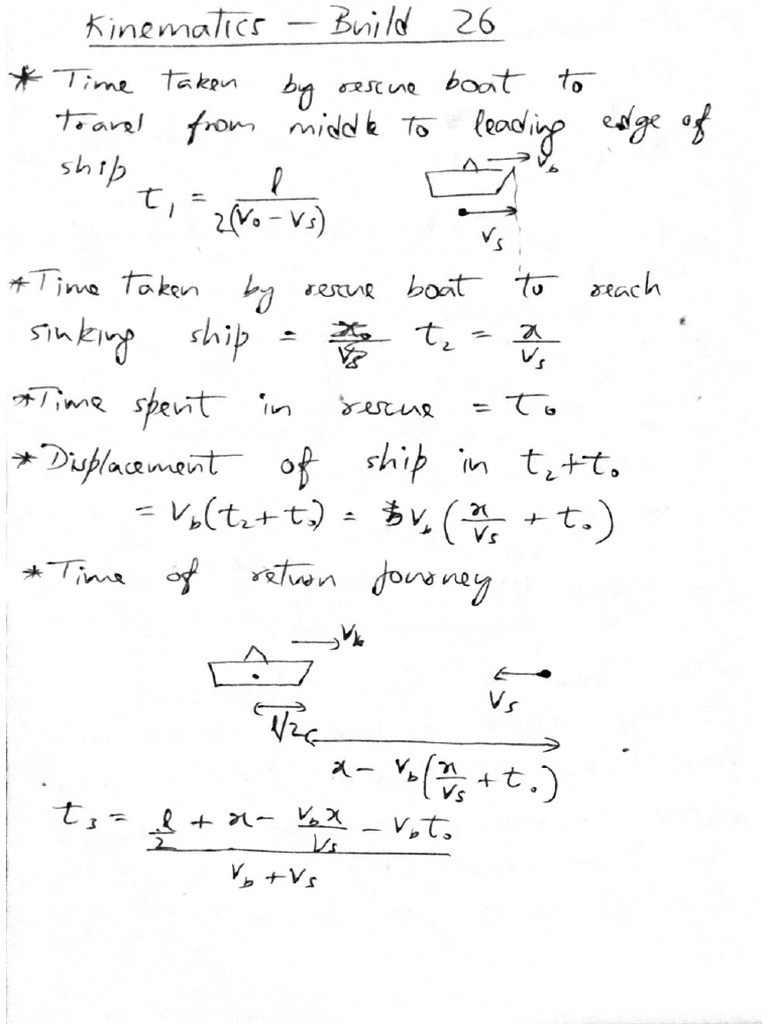 Kinematics - Build 26
* Time taken by rescue boat to
travel from middle to leading edge of
ship t₁ = l / 2(V₀ - Vs)
Vb
Vs
* Time taken by rescue boat to reach
sinking ship = t₂ = x / Vs
* Time spent in rescue = t₀
* Displacement of ship in t₂ + t₀
= Vb(t₂ + t₀) = Vb(x/Vs + t₀)
* Time of return journey
Vb
Vs
l/2
x - Vb(x/Vs + t₀)
t₃ = (l/2 + x - Vb x/Vs - Vb t₀) / (Vb + Vs)